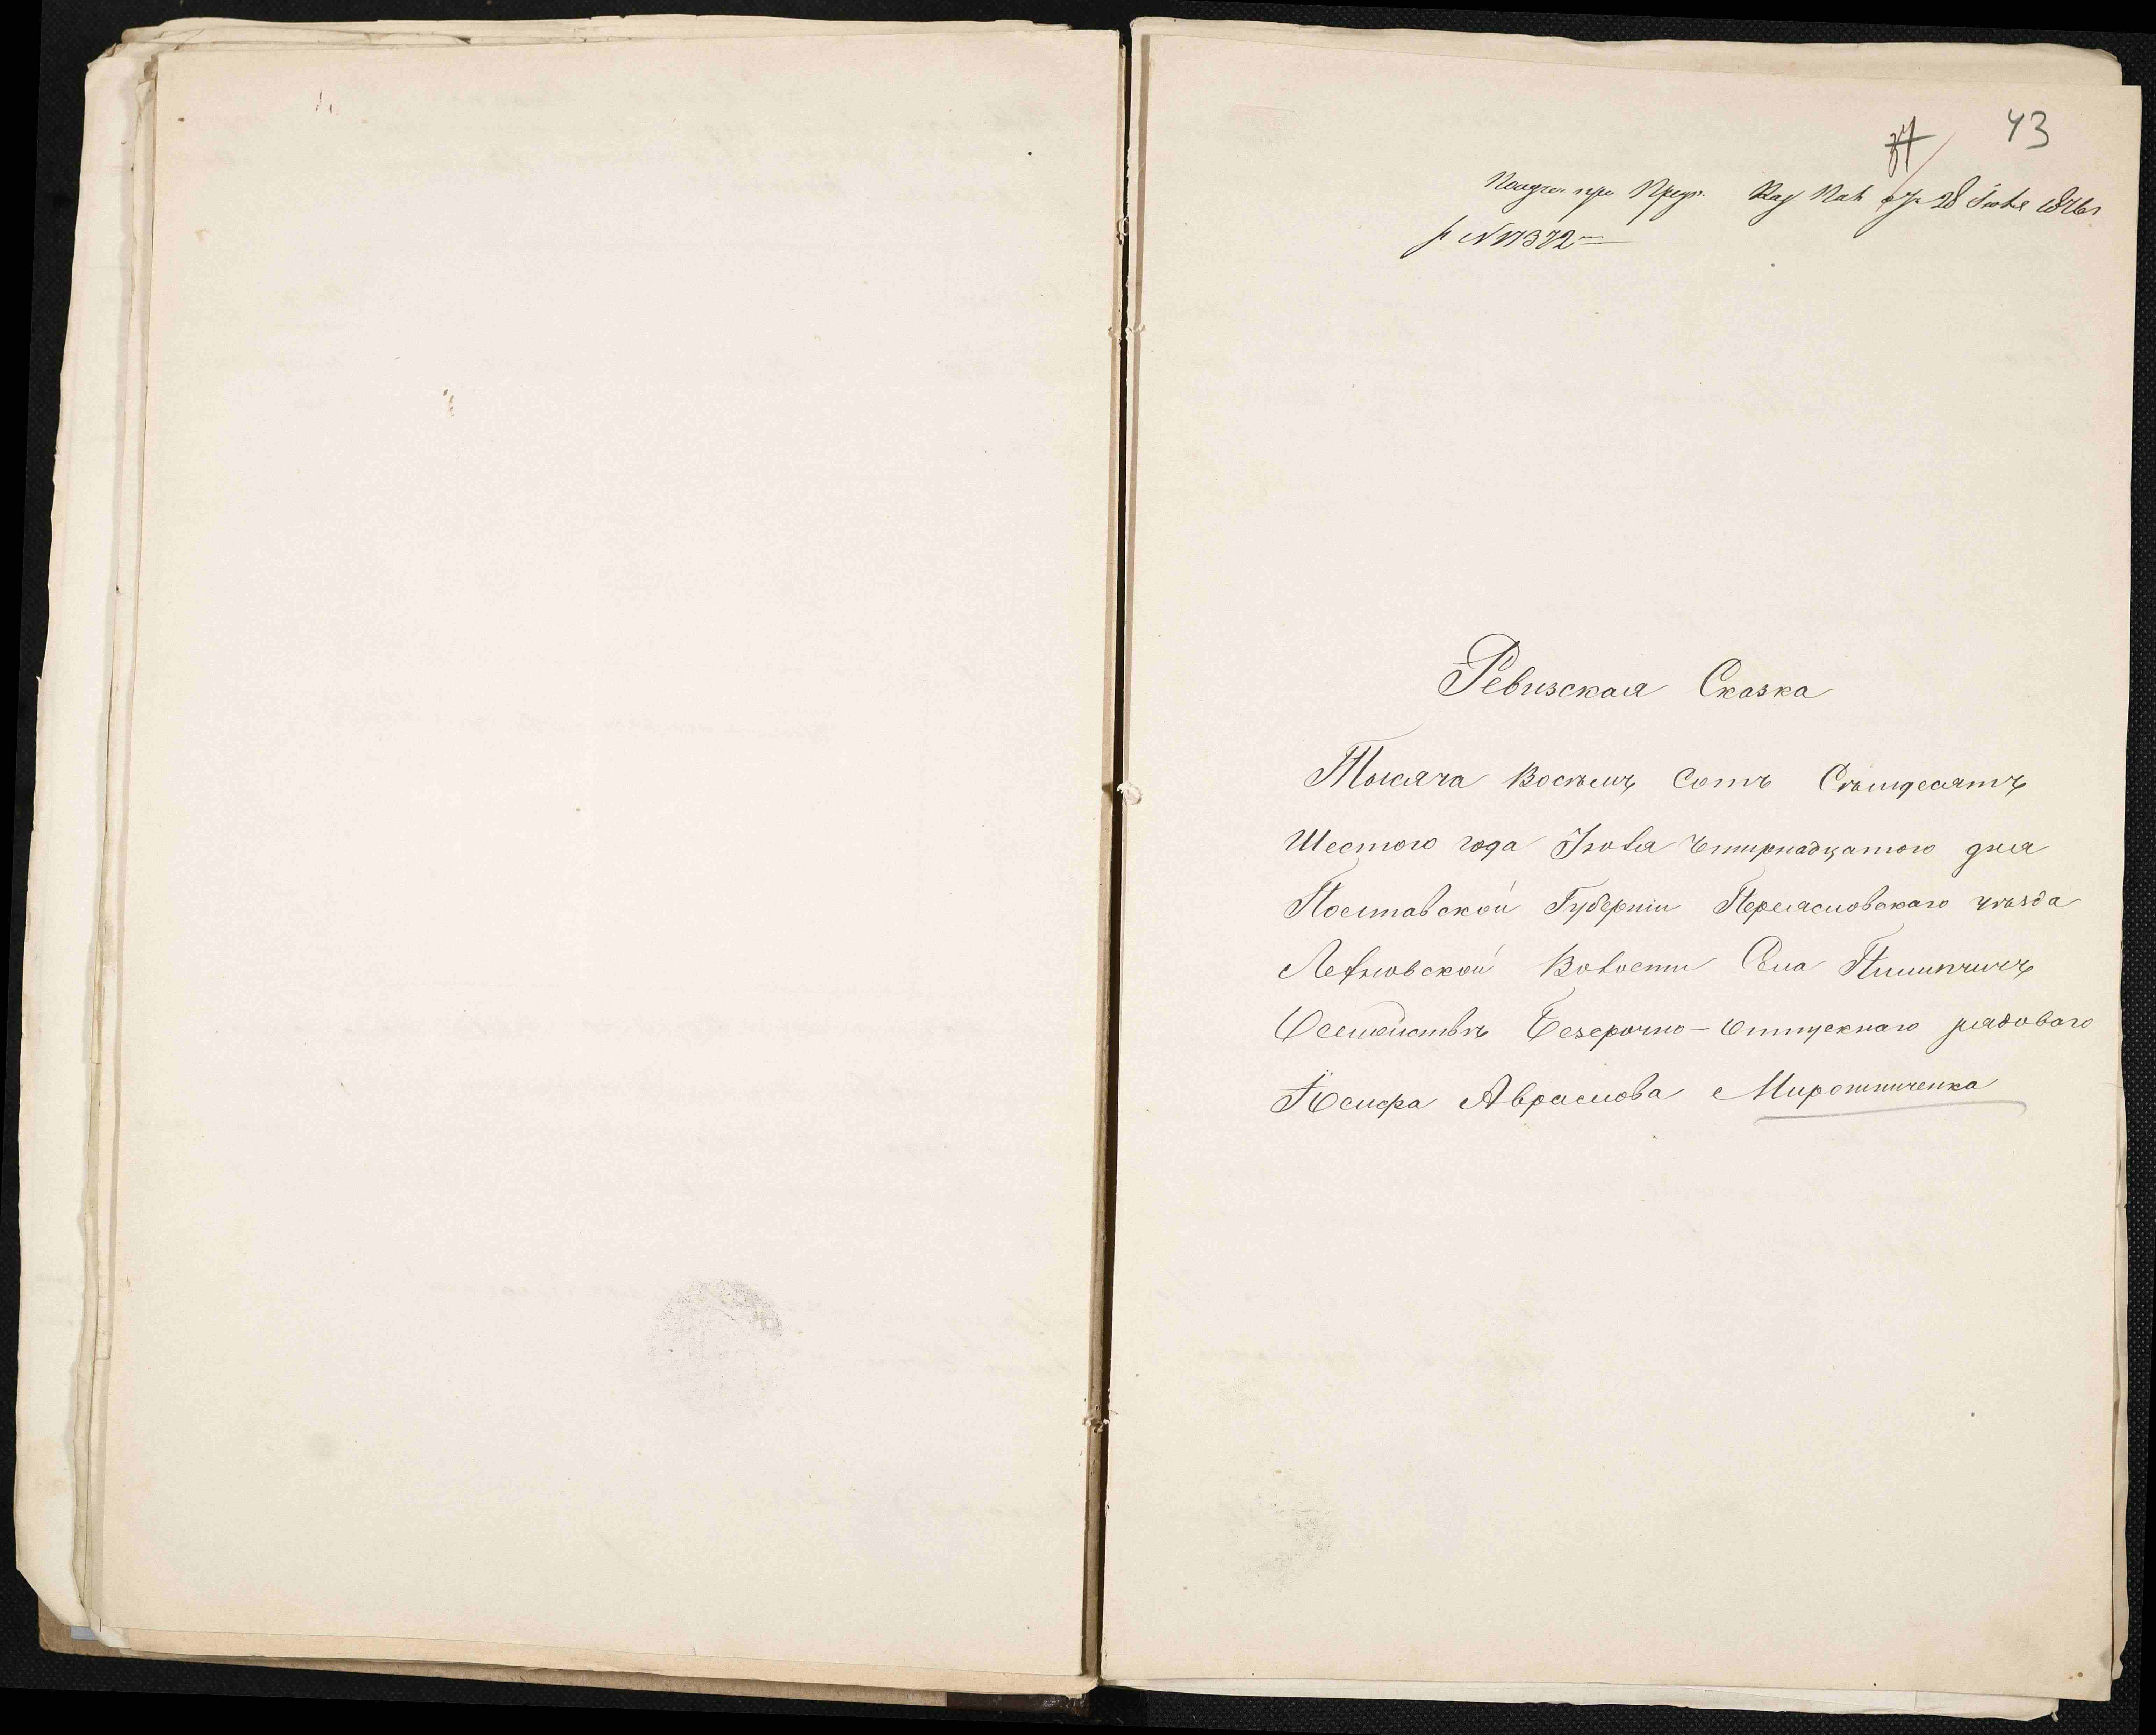 43
37
Получ. при Предп. Каз Пал отъ 28 Іюля 1876 г
за № 17372
Ревизская Сказка
Тысяча Восѣмъ Сотъ Сѣмдесятъ
Шестого года Іюля Чтирнадцатого дня
Полтавской Губерніи Переясловского уѣзда
Леляковской Волости Села
Семѣйствѣ Безсрочно-Отпускнаго рядоваго
Іосифа Аврамова Мирошниченка